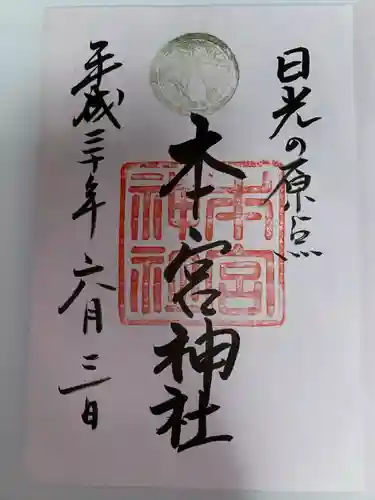 日光の原点
本宮神社
本宮
神社
平成三十年六月三日